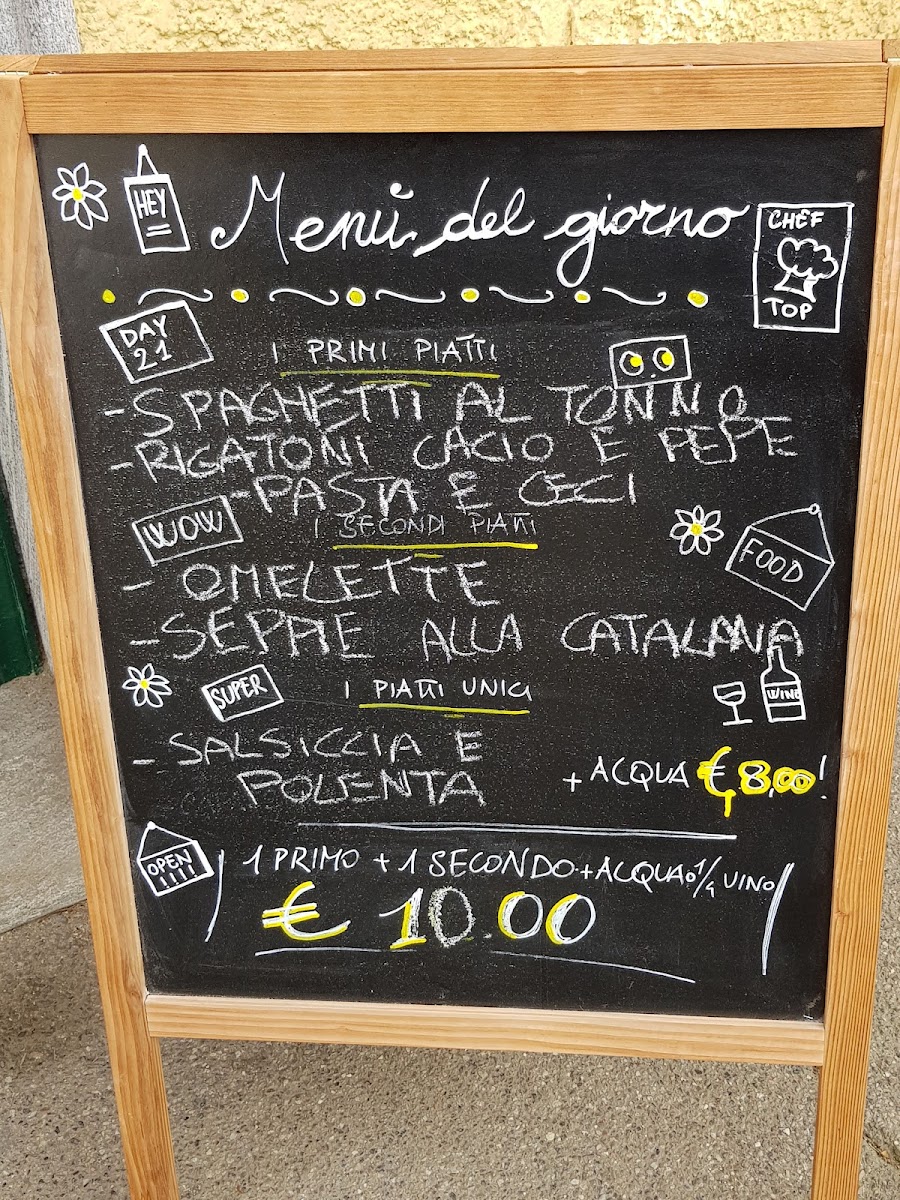 HEY
Menù del giorno
CHEF
TOP
DAY
21
I PRIMI PIATTI
- SPAGHETTI AL TONNO
- RIGATONI CACIO E PEPE
- PASTA E CECI
WOW
I SECONDI PIATTI
FOOD
- OMELETTE
- SEPPIE ALLA CATALANA
SUPER
I PIATTI UNICI
WINE
- SALSICCIA E
POLENTA
+ ACQUA € 8,00!
OPEN
!!!!
1 PRIMO + 1 SECONDO + ACQUA o 1/4 VINO
€ 10.00